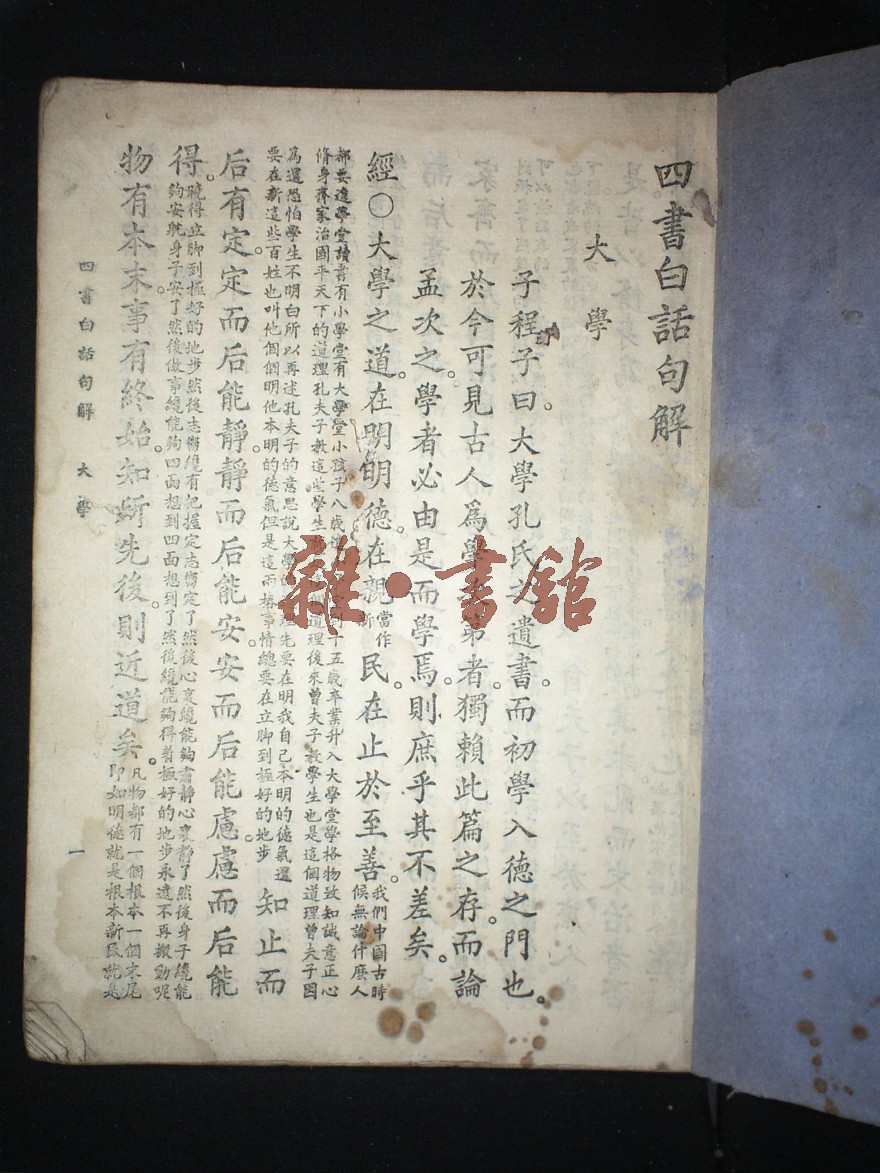 四書白話句解
大學
子程子曰。大學孔氏之遺書。而初學入德之門也。
於今可見古人爲學次第者。獨賴此篇之存。而論
孟次之。學者必由是而學焉。則庶乎其不差矣。
經〇大學之道。在明明德。在親當作新民。在止於至善。我們中國古時候無論什麽人
都要進學堂讀書有小學堂有大學堂小孩子八歲進小學堂到十五歲卒業升入大學堂學格物致知誠意正心
脩身齊家治國平天下的道理孔夫子教這些學生道理後來曾夫子教學生也是這個道理曾夫子因
爲還恐怕學生不明白所以再述孔夫子的意思說大學的道理先要在明我自己本明的德氣還
要在新這些百姓也叫他個個明他本明的德氣但是這兩樁事情總要在立脚到極好的地步
知止而
后有定。定而后能靜。靜而后能安。安而后能慮。慮而后能
得。曉得立脚到極好的地步然後志嚮纔有把握定志嚮定了然後心裏纔能夠肅靜心裏靜了然後身子纔能
夠安躭身子安了然後做事纔能夠四面想到四面想到了然後纔能夠得着極好的地步永遠不再搬動呢
物有本末。事有終始。知所先後。則近道矣。凡物都有一個根本一個末尾
即如明德就是根本新民就是
四書白話句解 大學 一
雜·書館